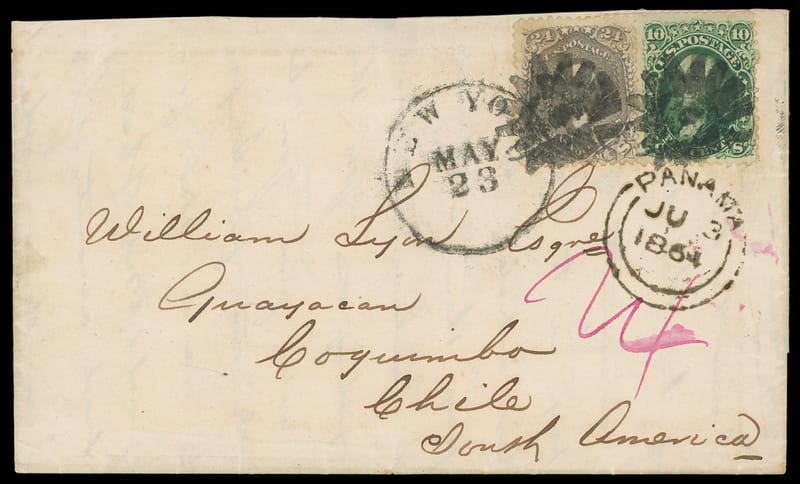 24 24
POSTAGE
10 10
U.S. POSTAGE
NEW YO
MAY
23
PANAMA
JU 3
1864
William Lyon Esqre
Guayacan
Coquimbo
Chile
South America
4